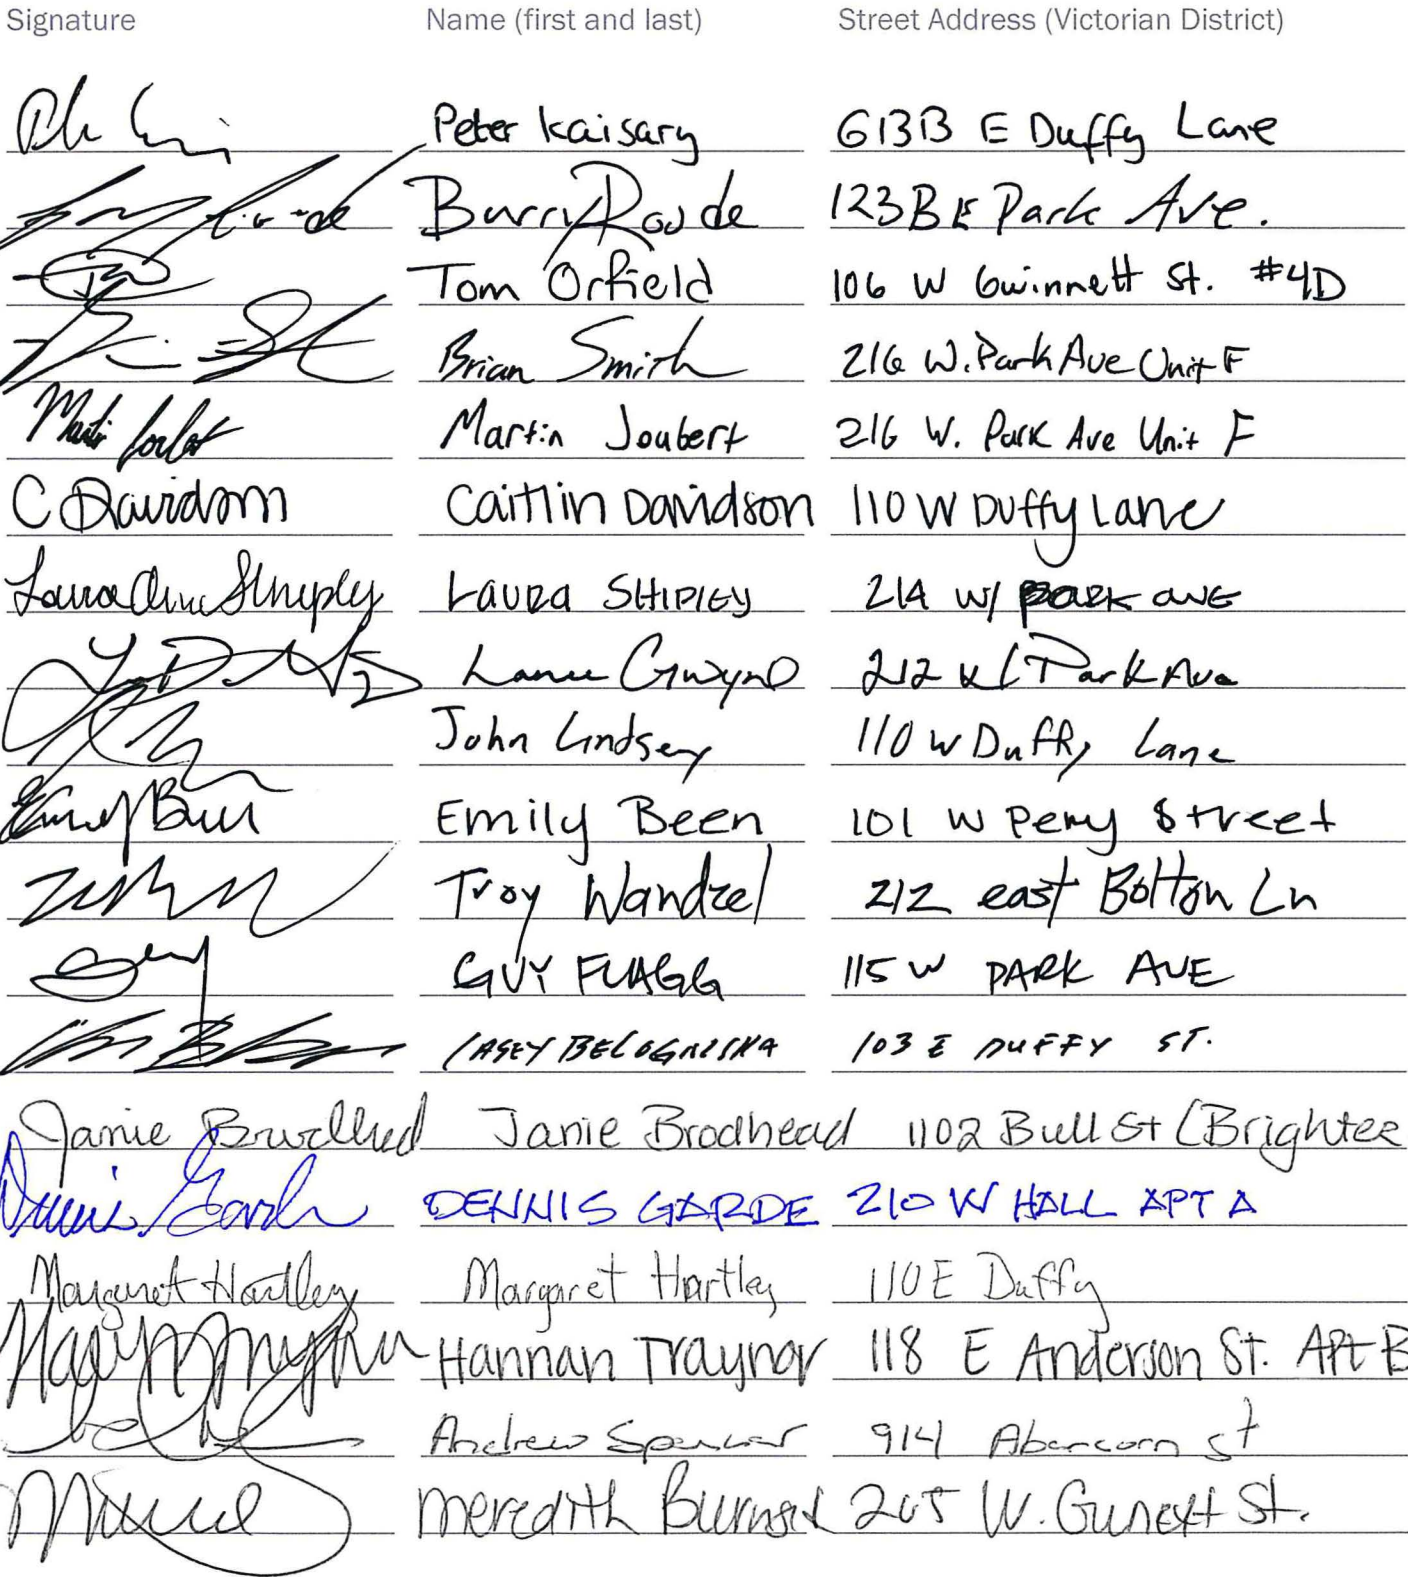 Signature Name (first and last) Street Address (Victorian District)
Peter Kaisary 613B E Duffy Lane
Barry Roude 123B E Park Ave.
Tom Orfield 106 W Gwinnett St. #4D
Brian Smith 216 W. Park Ave Unit F
Martin Joubert 216 W. Park Ave Unit F
C Davidson Caitlin Davidson 110 W Duffy Lane
Laura Shipley LAURA SHIPLEY 214 W PARK AVE
Lance Gwynn 212 W Park Ave
John Lindsey 110 W Duffy Lane
Emily Been 101 W Perry Street
Troy Wandzel 212 east Bolton Ln
GUY FLAGG 115 W PARK AVE
CASEY 103 E DUFFY ST.
Janie Brodhead Janie Brodhead 1102 Bull St (Brighter
DENNIS GARDE 210 W HALL APT A
Margaret Hartley Margaret Hartley 110 E Duffy
Hannah Traynor 118 E Anderson St. Apt B
Andrew Spencer 914 Abercorn St
Meredith 205 W. St.